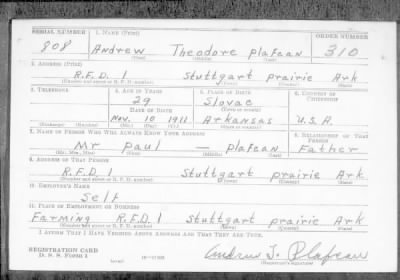 SERIAL NUMBER 1. NAME (Print) ORDER NUMBER
808 Andrew Theodore Plafcan 310
(First) (Middle) (Last)
2. ADDRESS (Print)
R.F.D. 1 Stuttgart prairie Ark
(Number and street or R. F. D. number) (Town) (County) (State)
3. TELEPHONE 4. AGE IN YEARS 5. PLACE OF BIRTH 6. COUNTRY OF CITIZENSHIP
29 Slovac
DATE OF BIRTH (Town or county)
Nov. 10 1911 Arkansas U.S.A.
(Exchange) (Number) (Mo.) (Day) (Yr.) (State or country)
7. NAME OF PERSON WHO WILL ALWAYS KNOW YOUR ADDRESS 8. RELATIONSHIP OF THAT PERSON
Mr Paul — Plafcan Father
(Mr., Mrs., Miss) (First) (Middle) (Last)
9. ADDRESS OF THAT PERSON
R.F.D. 1 Stuttgart prairie Ark
(Number and street or R. F. D. number) (Town) (County) (State)
10. EMPLOYER'S NAME
Self
11. PLACE OF EMPLOYMENT OR BUSINESS
Farming R.F.D. 1 Stuttgart prairie Ark
(Number and street or R. F. D. number) (Town) (County) (State)
I AFFIRM THAT I HAVE VERIFIED ABOVE ANSWERS AND THAT THEY ARE TRUE.
REGISTRATION CARD
D. S. S. Form 1 Andrew T. Plafcan
(Registrant's signature)